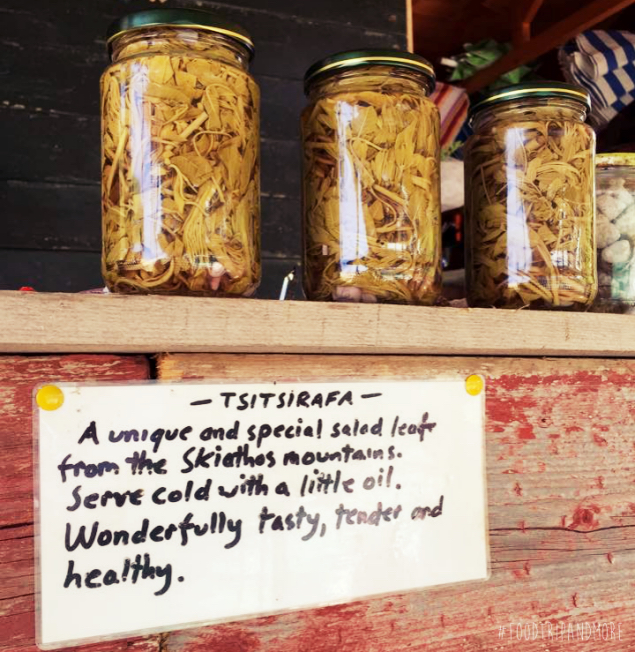 — TSITSIRAFA —
A unique and special salad leaf
from the Skiathos mountains.
Serve cold with a little oil.
Wonderfully tasty, tender and
healthy.
#FOODTRIPANDMORE